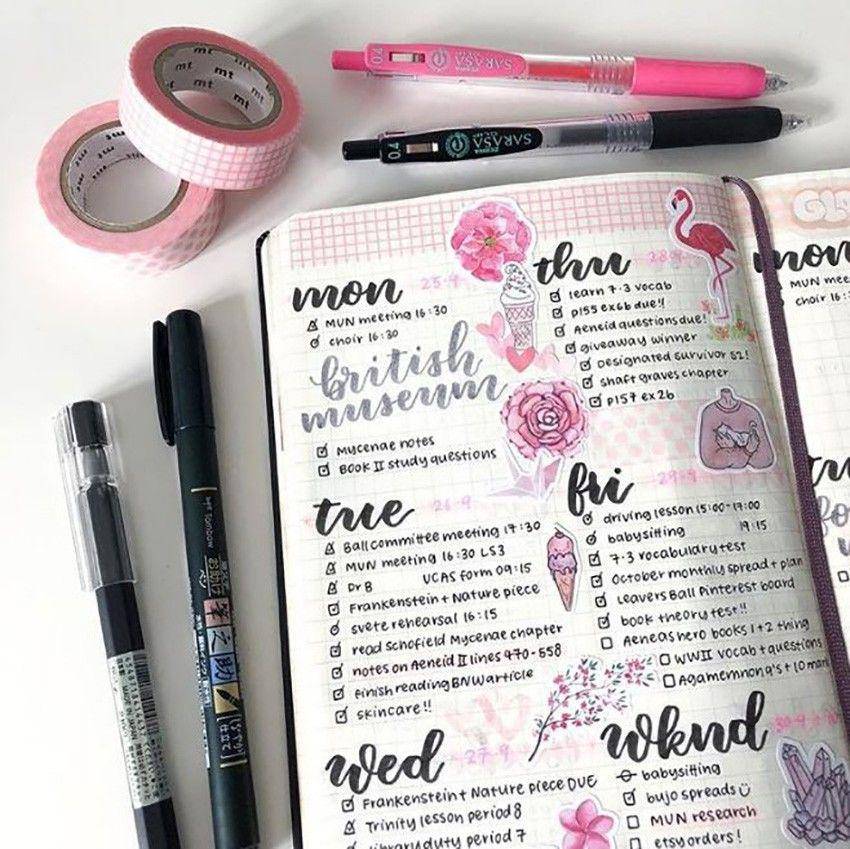 mt mt mt
mt mt
0.4 SARASA
0.4 ZEBRA SARASA
mon 25-9
MUN meeting 16:30
choir 16:30
british
museum
Mycenae notes
BOOK II study questions
tue 26-9
Ball committee meeting 17:30
MUN meeting 16:30 LS3
Dr B UCAS form 09:15
Frankenstein + Nature piece
svete rehearsal 16:15
read Schofield Mycenae chapter
notes on Aeneid II lines 470-558
finish reading BNW article
skincare!!
wed 27-9
Frankenstein + Nature piece DUE
Trinity lesson period 8
library duty period 7
thu 28-9
learn 7-3 vocab
p155 ex6b due!!
Aeneid questions due!
giveaway winner
Designated Survivor S2!
shaft graves chapter
p157 ex2b
fri 29-9
driving lesson 15:00-17:00
babysitting 19:15
7-3 vocabulary test
October monthly spread + plan
Leavers Ball Pinterest board
book theory test!!
Aeneas hero books 1+2 thing
WWII vocab + questions
Agamemnon q's + 10 mark
wknd 30-9
babysitting
bujo spreads
MUN research
etsy orders!
mon
MUN meet
choir 16:
tombow
MADE IN JAPAN